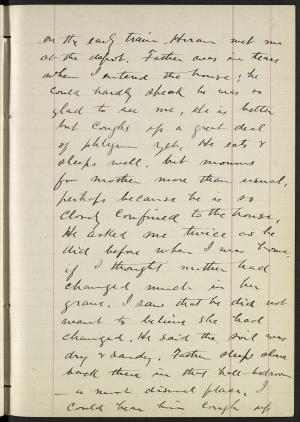 on the early train. Hiram met me
at the depot. Father was in tears
when I entered the house; he
could hardly speak he was so
glad to see me, He is better
but coughs up a great deal
of phlegm yet, He eats &
sleeps well. but mourns
for mother more than usual,
perhaps because he is so
closely confined to the house,
He asked me twice as he
did before when I was home,
if I thought mother had
changed much in her
grave. I saw that he did not
want to believe she had
changed. He said the soil was
dry & sandy. Father sleeps alone
back there in that hall-bedroom
— a most dismal place, I
could hear him cough up